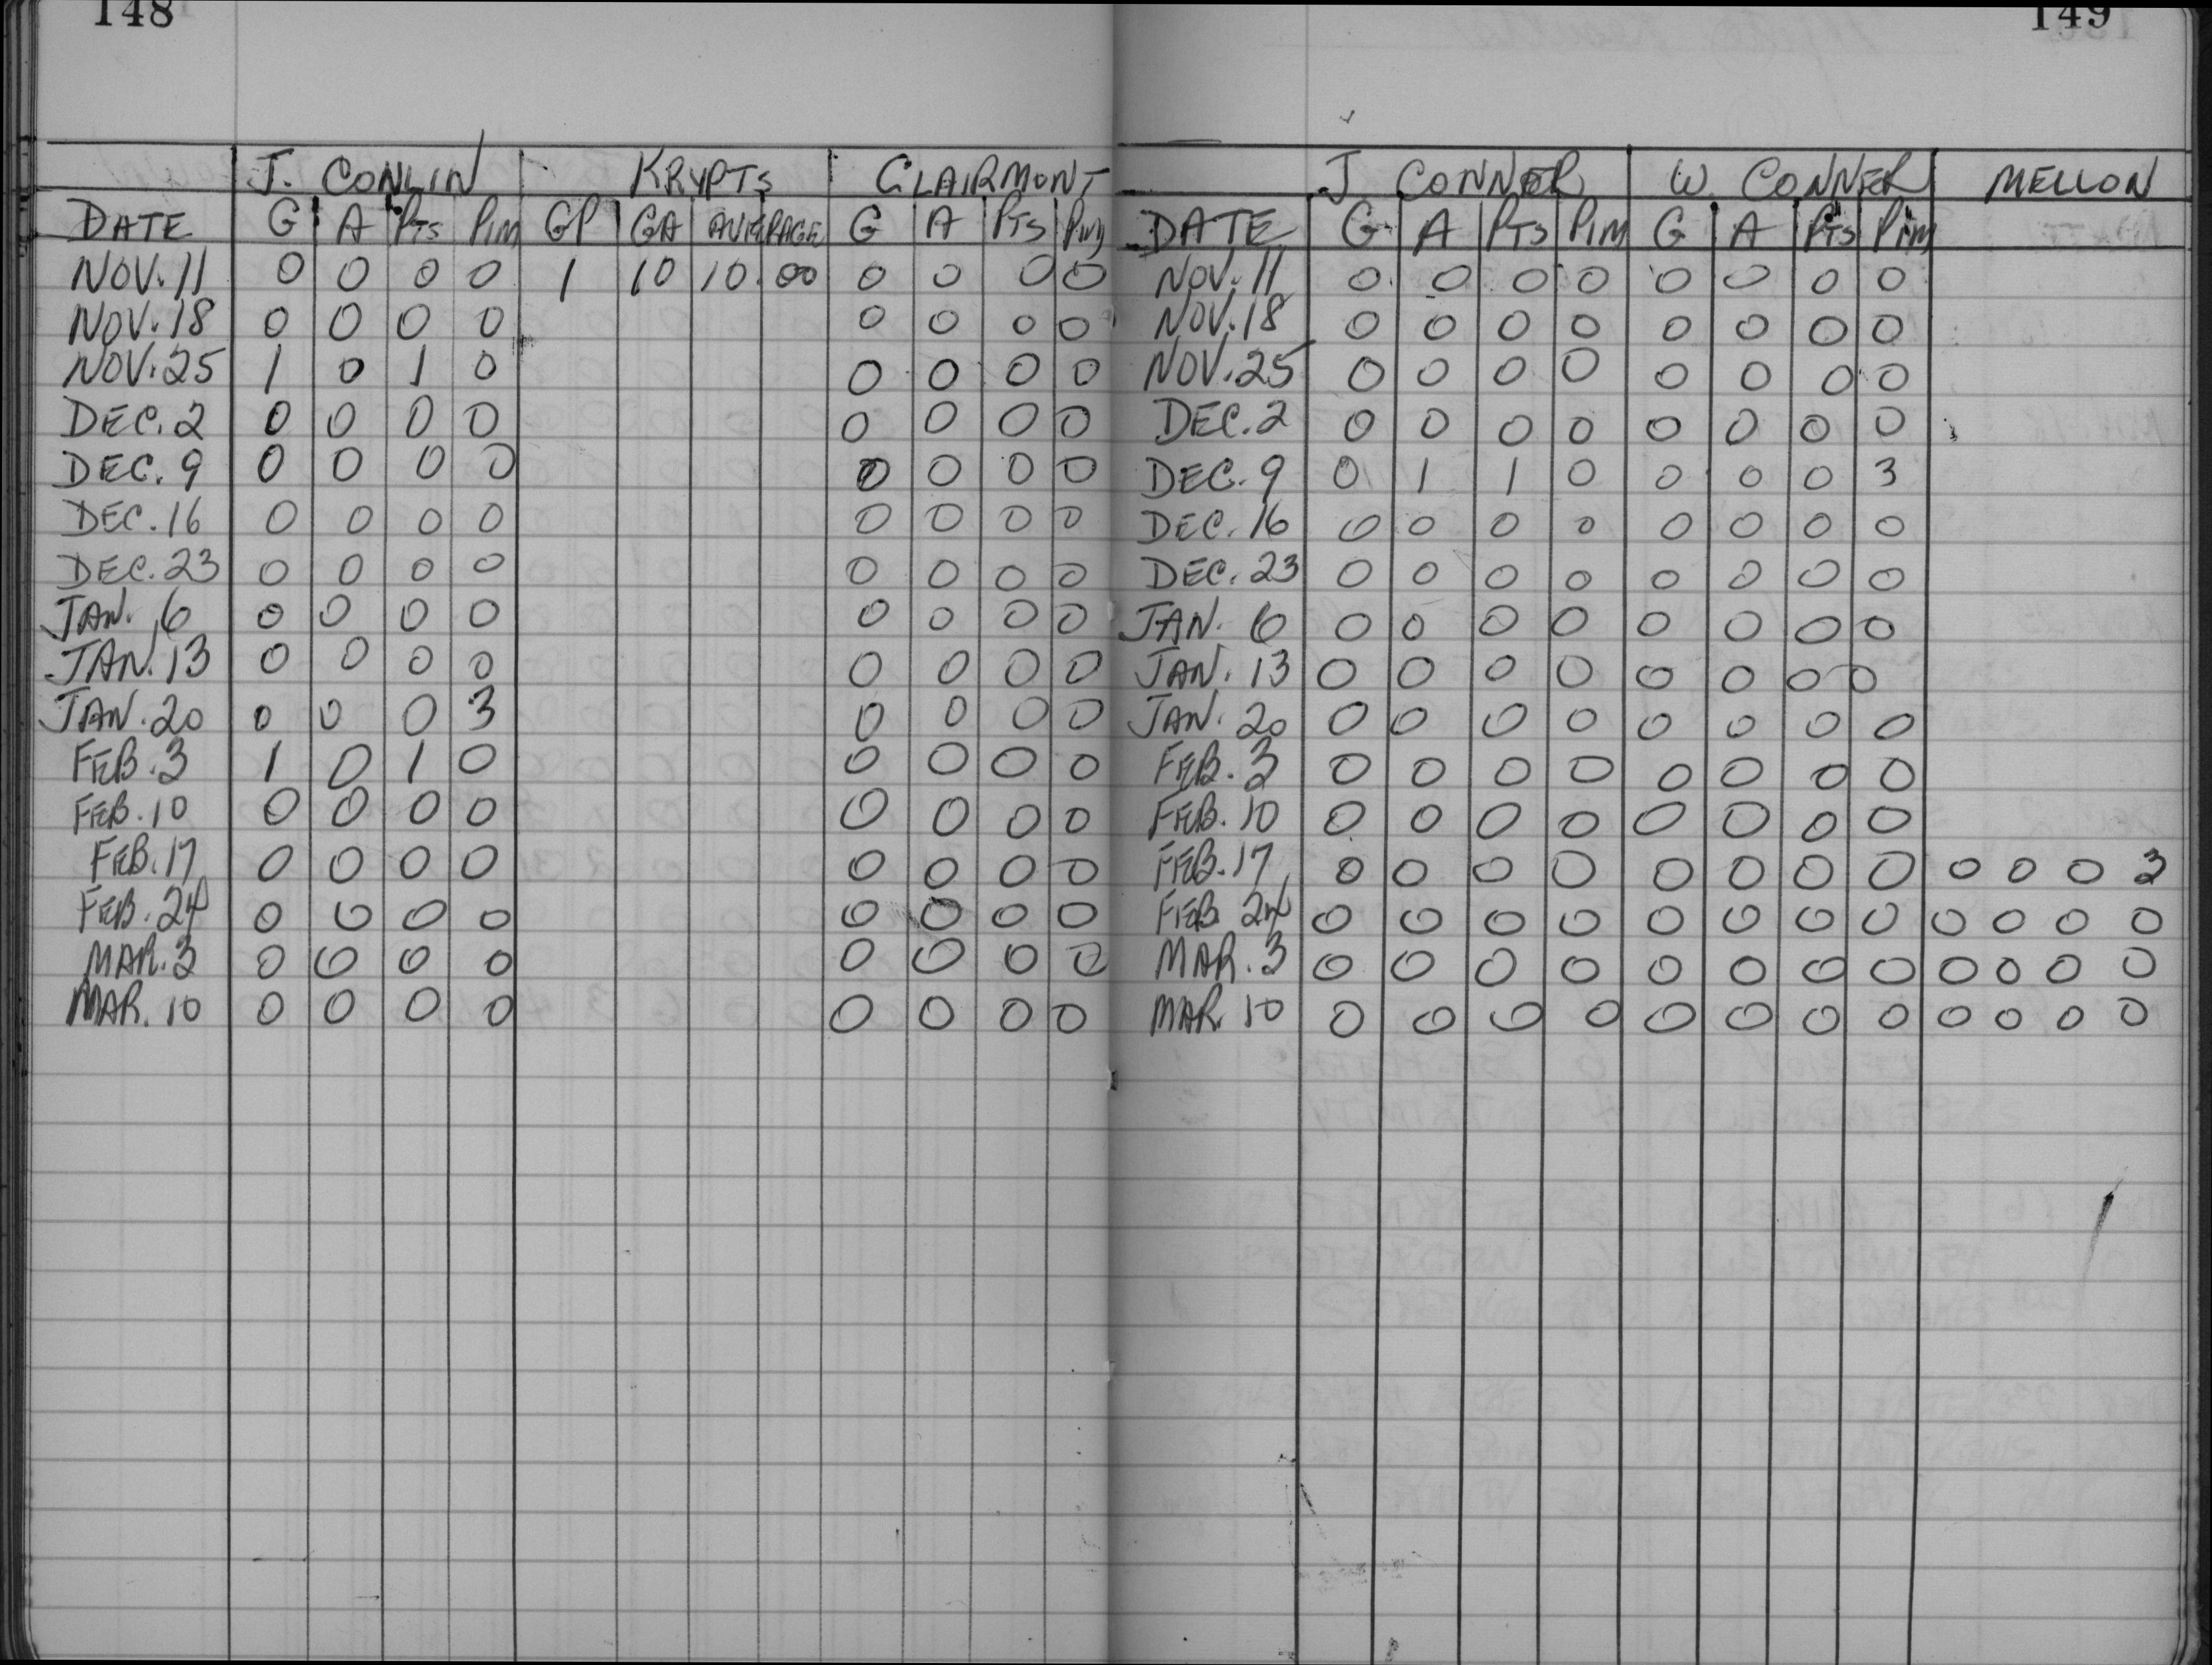 148
J. CONLIN KRYPTS CLAIRMONT
DATE G A PTS PIM GP GA AVERAGE G A PTS PIM
NOV. 11 0 0 0 0 1 10 10.00 0 0 0 0
NOV. 18 0 0 0 0 0 0 0 0
NOV. 25 1 0 1 0 0 0 0 0
DEC. 2 0 0 0 0 0 0 0 0
DEC. 9 0 0 0 0 0 0 0 0
DEC. 16 0 0 0 0 0 0 0 0
DEC. 23 0 0 0 0 0 0 0 0
JAN. 6 0 0 0 0 0 0 0 0
JAN. 13 0 0 0 0 0 0 0 0
JAN. 20 0 0 0 3 0 0 0 0
FEB. 3 1 0 1 0 0 0 0 0
FEB. 10 0 0 0 0 0 0 0 0
FEB. 17 0 0 0 0 0 0 0 0
FEB. 24 0 0 0 0 0 0 0 0
MAR. 3 0 0 0 0 0 0 0
MAR. 10 0 0 0 0 0 0 0 0
149
J CONNER W. CONNER MELLON
DATE G A PTS PIM G A PTS PIM
NOV. 11 0 0 0 0 0 0 0 0
NOV. 18 0 0 0 0 0 0 0 0
NOV. 25 0 0 0 0 0 0 0 0
DEC. 2 0 0 0 0 0 0 0 0
DEC. 9 0 1 1 0 0 0 0 3
DEC. 16 0 0 0 0 0 0 0 0
DEC. 23 0 0 0 0 0 0 0 0
JAN. 6 0 0 0 0 0 0 0 0
JAN. 13 0 0 0 0 0 0 0 0
JAN. 20 0 0 0 0 0 0 0 0
FEB. 3 0 0 0 0 0 0 0 0
FEB. 10 0 0 0 0 0 0 0 0
FEB. 17 0 0 0 0 0 0 0 0 0 0 0 3
FEB. 24 0 0 0 0 0 0 0 0 0 0 0 0
MAR. 3 0 0 0 0 0 0 0 0 0 0 0 0
MAR. 10 0 0 0 0 0 0 0 0 0 0 0 0